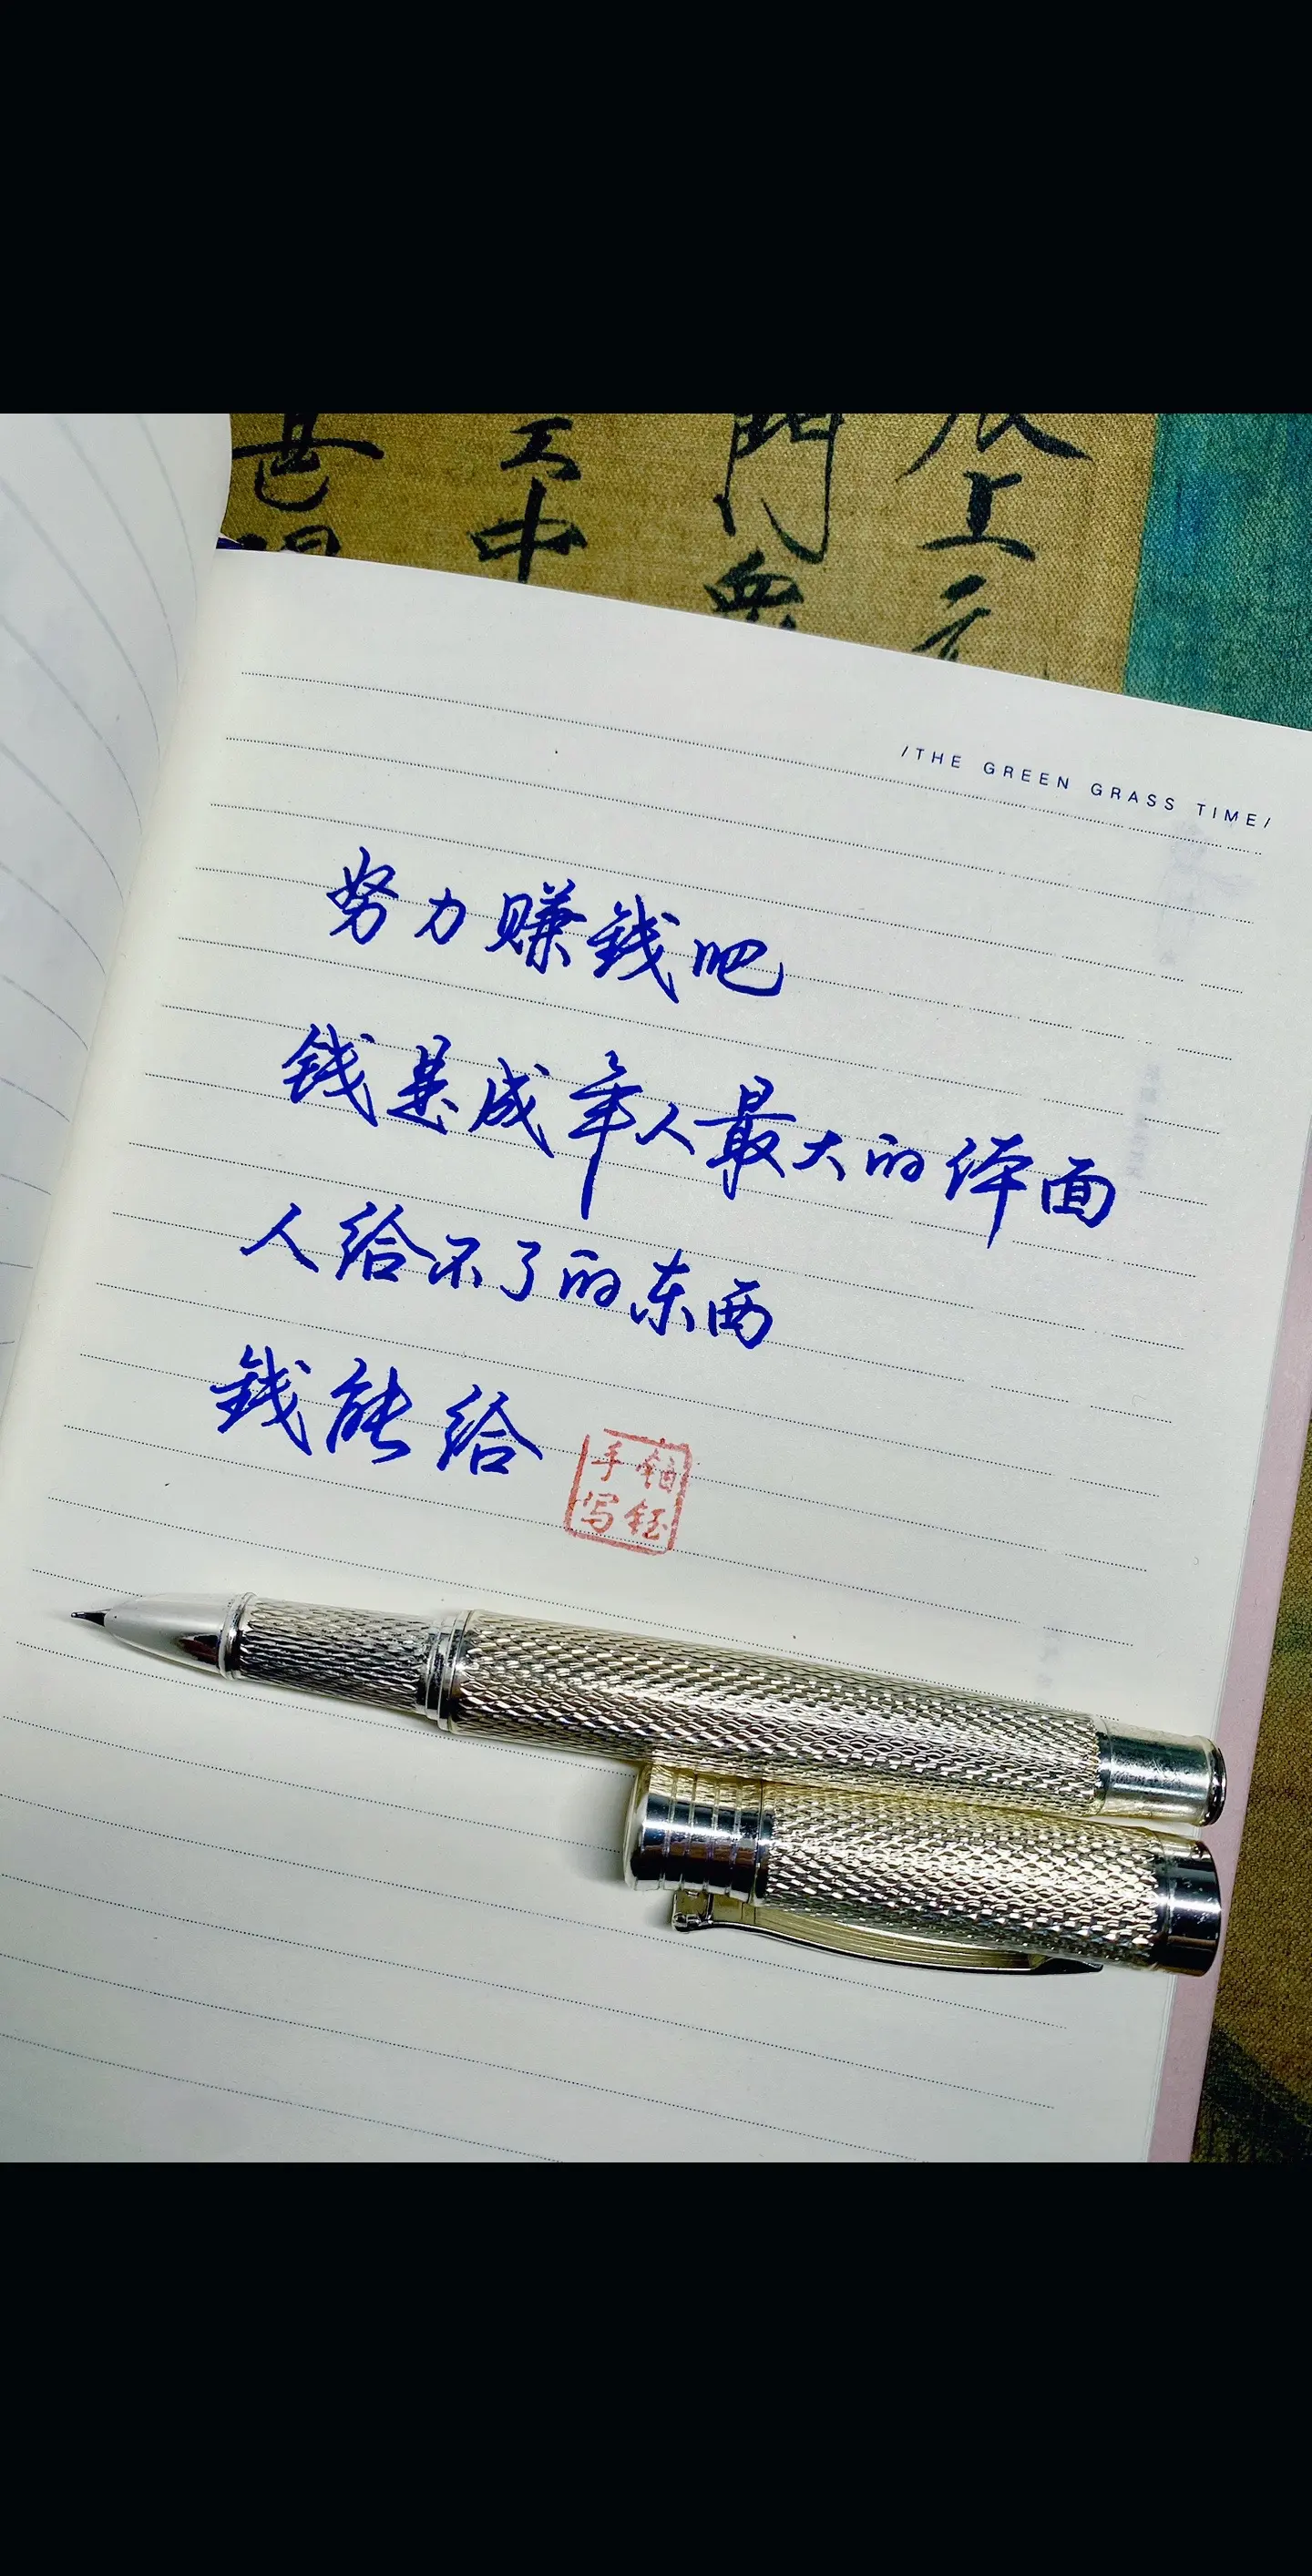 /THE GREEN GRASS TIME/
努力赚錢吧
钱是成年人最大的体面
人给不了的东西
錢能给
手写